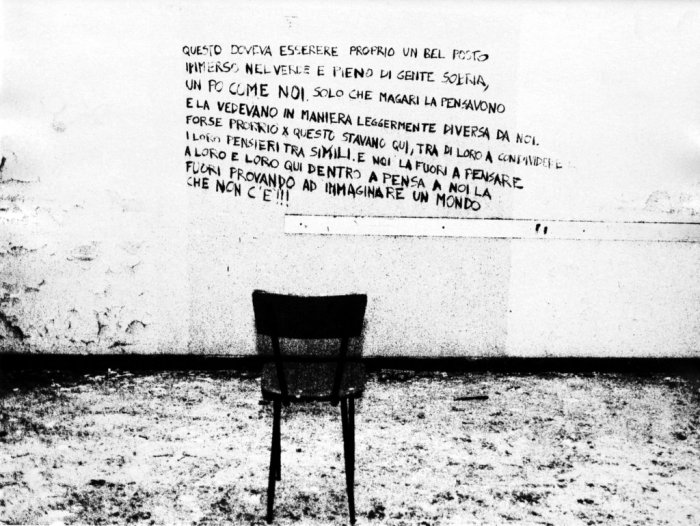 QUESTO DOVEVA ESSERERE PROPRIO UN BEL POSTO
IMMERSO NEL VERDE E PIENO DI GENTE SOBRIA,
UN PO COME NOI. SOLO CHE MAGARI LA PENSAVONO
E LA VEDEVANO IN MANIERA LEGGERMENTE DIVERSA DA NOI.
FORSE PROPRIO X QUESTO STAVANO QUI, TRA DI LORO A CONDIVIDERE
I LORO PENSIERI TRA SIMILI. E NOI LA FUORI A PENSARE
A LORO E LORO QUI DENTRO A PENSA A NOI LA
FUORI PROVANDO AD IMMAGINARE UN MONDO
CHE NON C'E'!!!